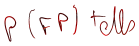 P (FP) tells